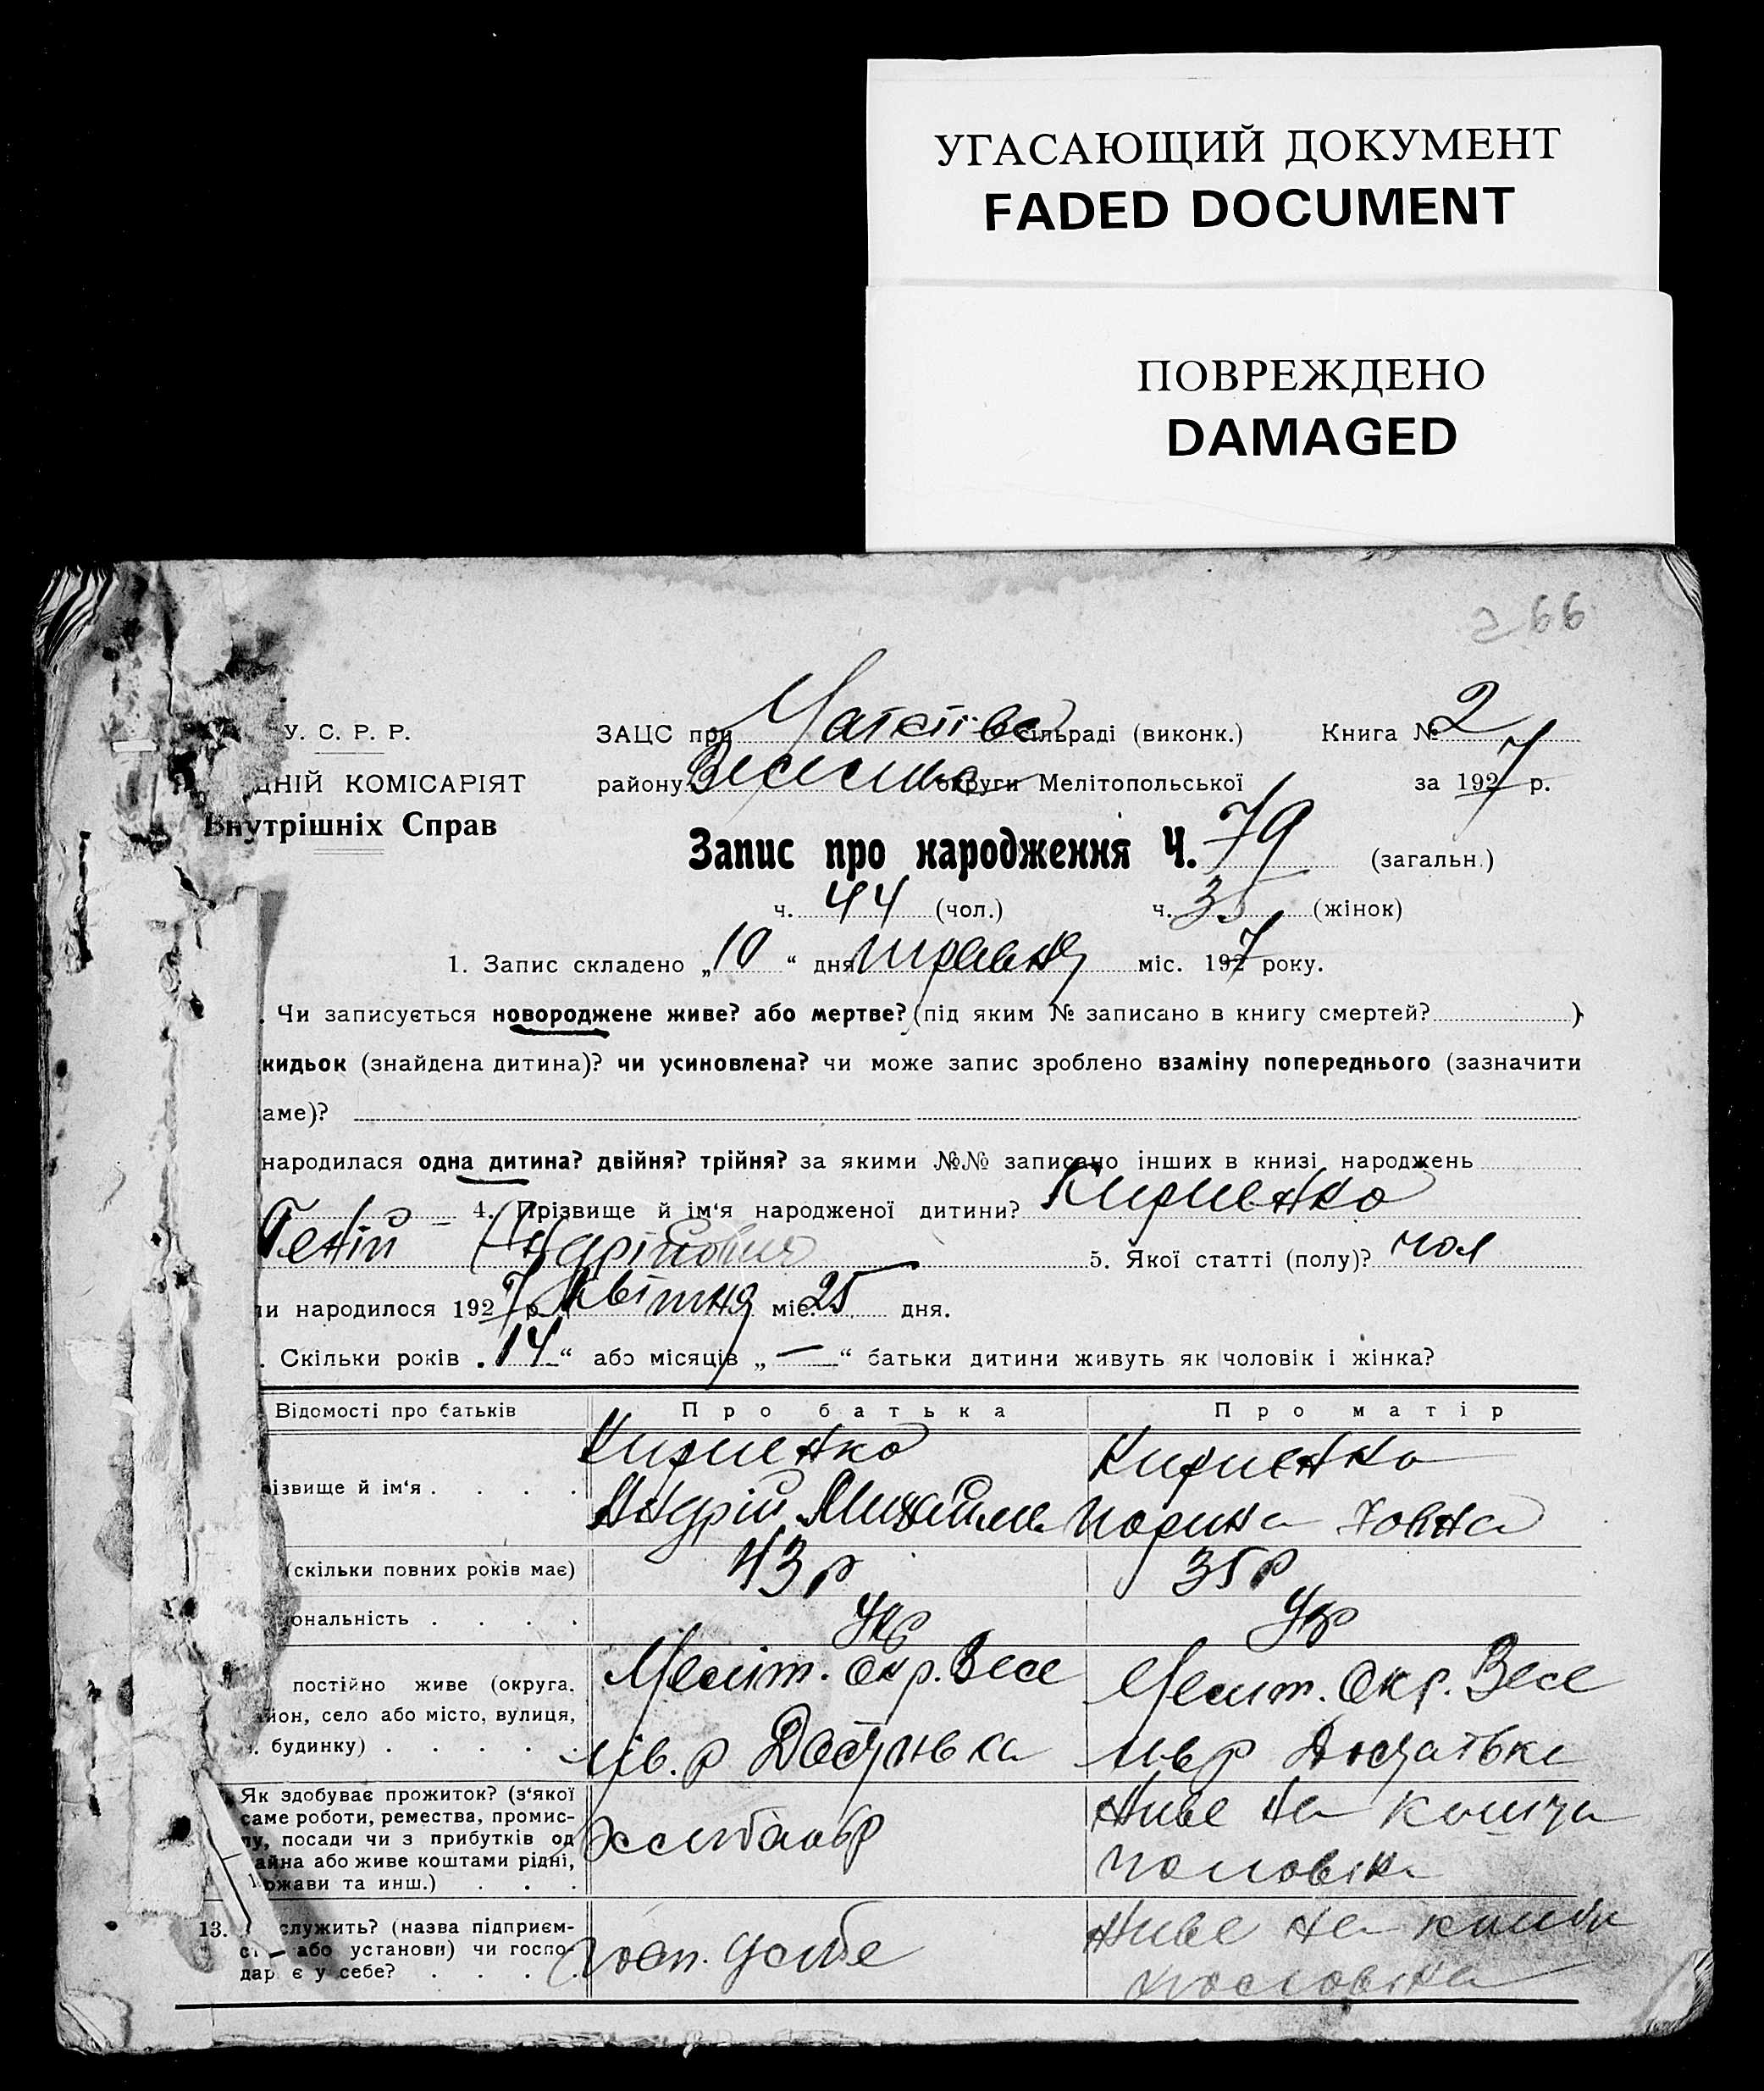 УГАСАЮЩИЙ ДОКУМЕНТ
FADED DOCUMENT
ПОВРЕЖДЕНО
DAMAGED
266
У. С. Р. Р. ЗАЦС при сільраді (виконк.) Книга № 2
ДНІЙ КОМІСАРІЯТ району округи Мелітопольської за 1927 р.
Внутрішніх Справ
Запис про народження Ч. 79 (загальн.)
ч. 44 (чол.) ч. 35 (жінок)
1. Запис складено „10“ дня травня міс. 1927 року.
. Чи записується новороджене живе? або мертве? (під яким № записано в книгу смертей? )
кидьок (знайдена дитина)? чи усиновлена? чи може запис зроблено взаміну попереднього (зазначити
аме)?
народилася одна дитина? двійня? трійня? за якими №№ записано інших в книзі народжень
4. Прізвище й ім‘я народженої дитини? Кириенко
5. Якої статті (полу)? чол
ли народилося 1927 р. Квітня міс. 25 дня.
. Скільки років „14“ або місяців „—“ батьки дитини живуть як чоловік і жінка?
Відомості про батьків Про батька Про матір
ізвище й ім‘я . . . .
Кириенко
Андрій
Кириенко
(скільки повних років має) 43 р 35 р
ональність . . . . Укр Укр
постійно живе (округа,
йон, село або місто, вулиця,
. будинку) . . . . .
Меліт. Окр. Весе
лів. р
Мелит. Окр. Весе
лив р
Як здобуває прожиток? (з‘якої
саме роботи, ремества, промис-
лу, посади чи з прибутків од
айна або живе коштами рідні,
ржави та инш.) . . .
Живе на кошти
чоловіка
13. служить? (назва підприєм-
ст або установи) чи госпо-
дар є у себе? . . . .
госп. у себе
Живе на кошти
чоловіка